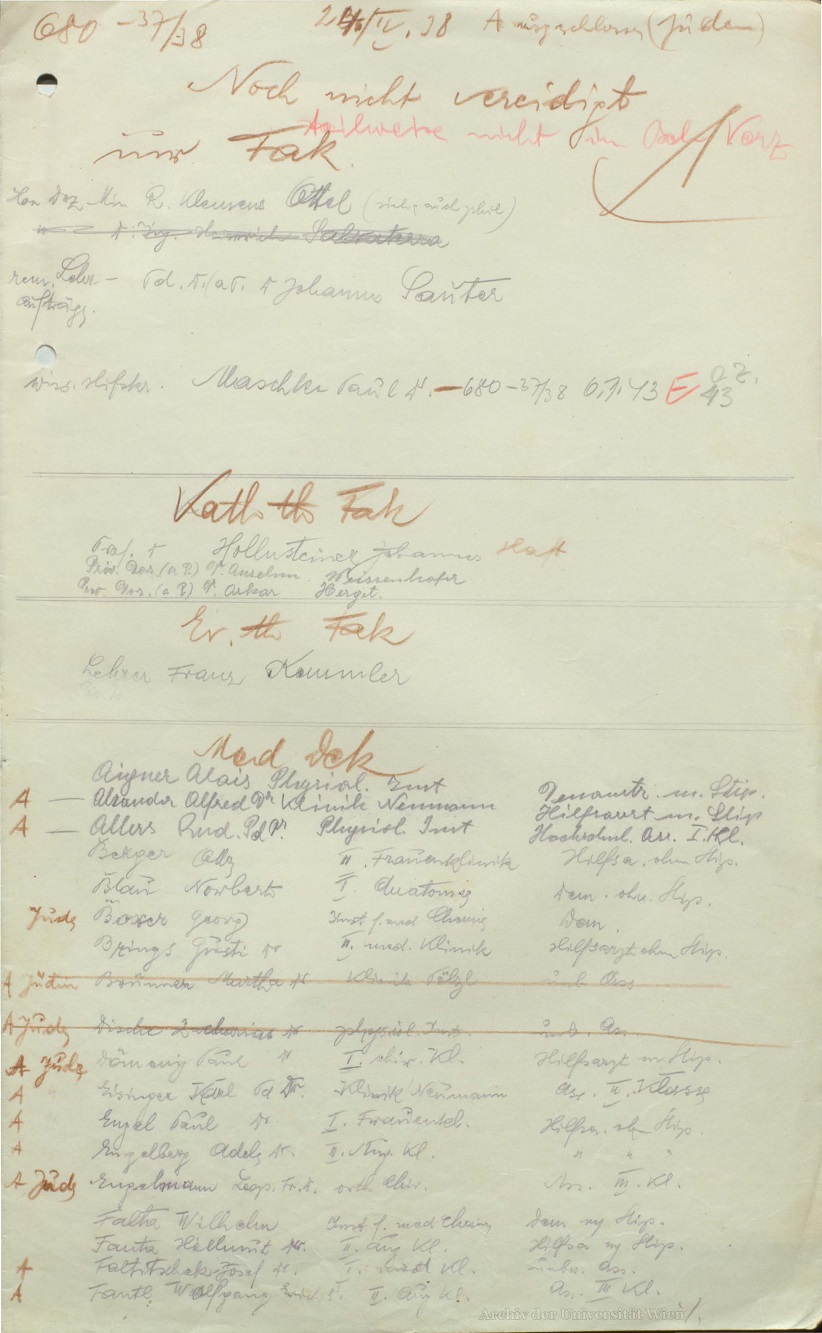 680 -37/38 /IV. 38 A ausgeschlossen (Juden)
Noch nicht vereidigt
teilweise nicht im Vorz
jur Fak.
Hon Doz. Min R. Klemens Ottel (siehe auch phil)
Dr. Ing. Heinrich
rem. Lehr- Pd. Dr. (ao. Dr Johannes Sauter
aufträge.
wiss. Hilfskr. Maschke Paul Dr. – 680-37/38 43 E 43
Kath th Fak
Prof. Dr Hollnsteiner Johannes Haft
Priv. Doz. (a P.) Dr. Anselm Weissenhofer
Priv. Doz. (a P.) Dr. Oskar Herget.
Ev. th Fak
Lehrer Franz Kammler
Med Dek
Aigner Alois Physiol. Inst Demonstr. m. Stip.
A — Alexander Alfred Dr Klinik Neumann Hilfsarzt m. Stip
A — Allers Rud. Pd Dr. Physiol. Inst Hochschul. Ass. I. Kl.
Berger Otto II. Frauenklinik Hilfsa. ohne Stip.
Blau Norbert I. Anatomie Dem. ohne Stip.
Jude Boxer Georg Inst f. med Chemie Dem.
Brings Gusti Dr II. med. Klinik Hilfsarzt ohne Stip.
A Jüdin Brunner Martha Dr Klinik Pötzl unb Ass
A Jude Dische Zacharias Dr physiol. Inst. unb. Ass.
A Jude Dömeny Paul Dr I. chir. Kl. Hilfsarzt m Stip.
A Eisinger Karl Pd Dr. Klinik Neumann Ass. II. Klasse
A Engel Paul Dr. I. Frauenkl. Hilfsa. ohne Stip.
A Engelberg Adele Dr. II. Aug. Kl. " " "
A Jude Engelmann Leop. Fr. Dr. orth Chir. Ass. III. Kl.
Wilhelm Inst f. med Chemie Dem m Stip.
Fanta Hellmut Dr. II. Aug Kl. Hilfsa m Stip.
A Faltitschek Josef Dr. I. med Kl. unbes. Ass.
A Fantl Wolfgang Dr. II. Aug Kl. Ass. III Kl.
Archiv der Universität Wien